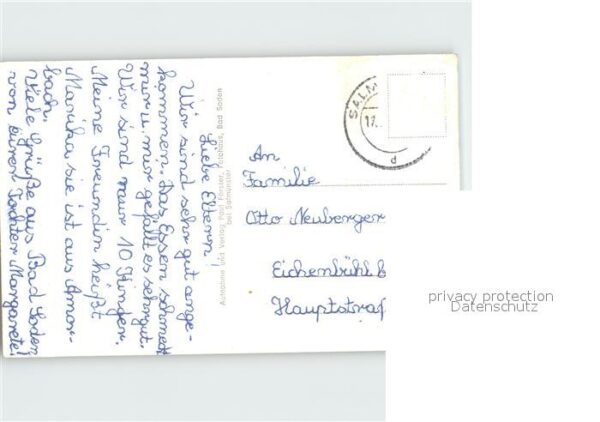 Liebe Eltern
Wir sind sehr gut ange-
kommen. Das Essen schmeckt
mir u. mir gefällt es sehr gut.
Wir sind nur 10 Kinder.
Meine Freundin heißt
Marika sie ist aus Amor-
bach.
Viele Grüße aus Bad Soden
von eurer Tochter Margarete!
Aufnahme und Verlag Paul Förster, Fotohaus, Bad Soden
bei Salmünster
SALM
17.
d
An
Familie
Otto Neuberger
Eichenbühl b
Hauptstraß
privacy protection
Datenschutz